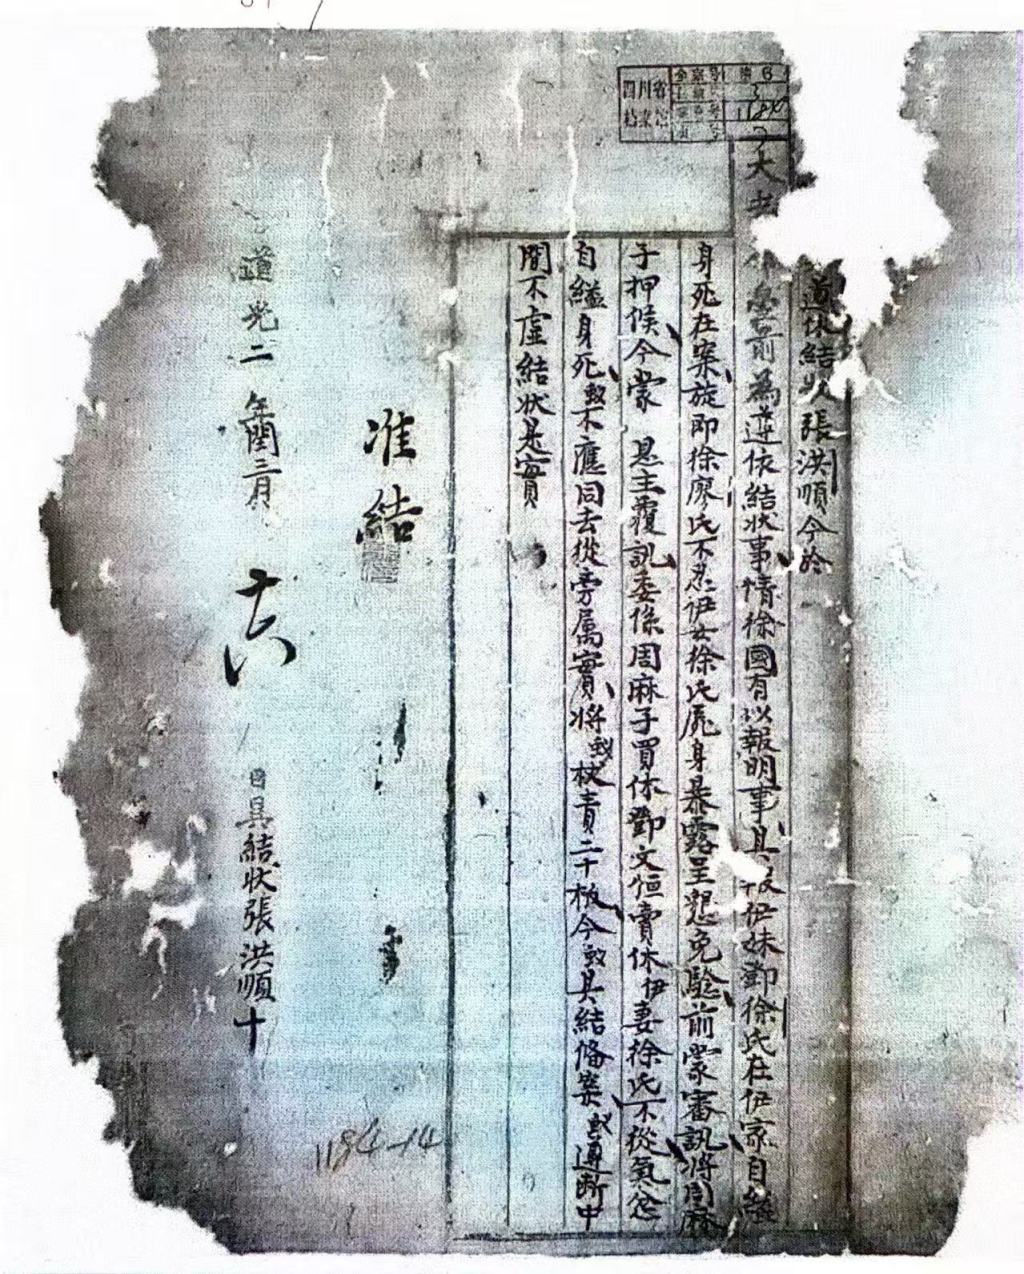 遵依結狀人張洪順今於
大老
臺前為遵依結狀事情徐國有以報明事具報伊妹鄧徐氏在伊家自縊
身死在案旋即徐廖氏不忍伊女徐氏屍身暴露呈懇免驗前蒙審訊將周麻
子押候今蒙 恩主覆訊委係周麻子買休鄧文恒賣休伊妻徐氏不從氣忿
自縊身死蟻不應同去從旁屬實將蟻杖責二十板今蟻具結備案蟻遵斷中
間不虛結狀是實
准結
道光二年閏三月 十六 日具結狀張洪順十
四川省檔案館
1184-14